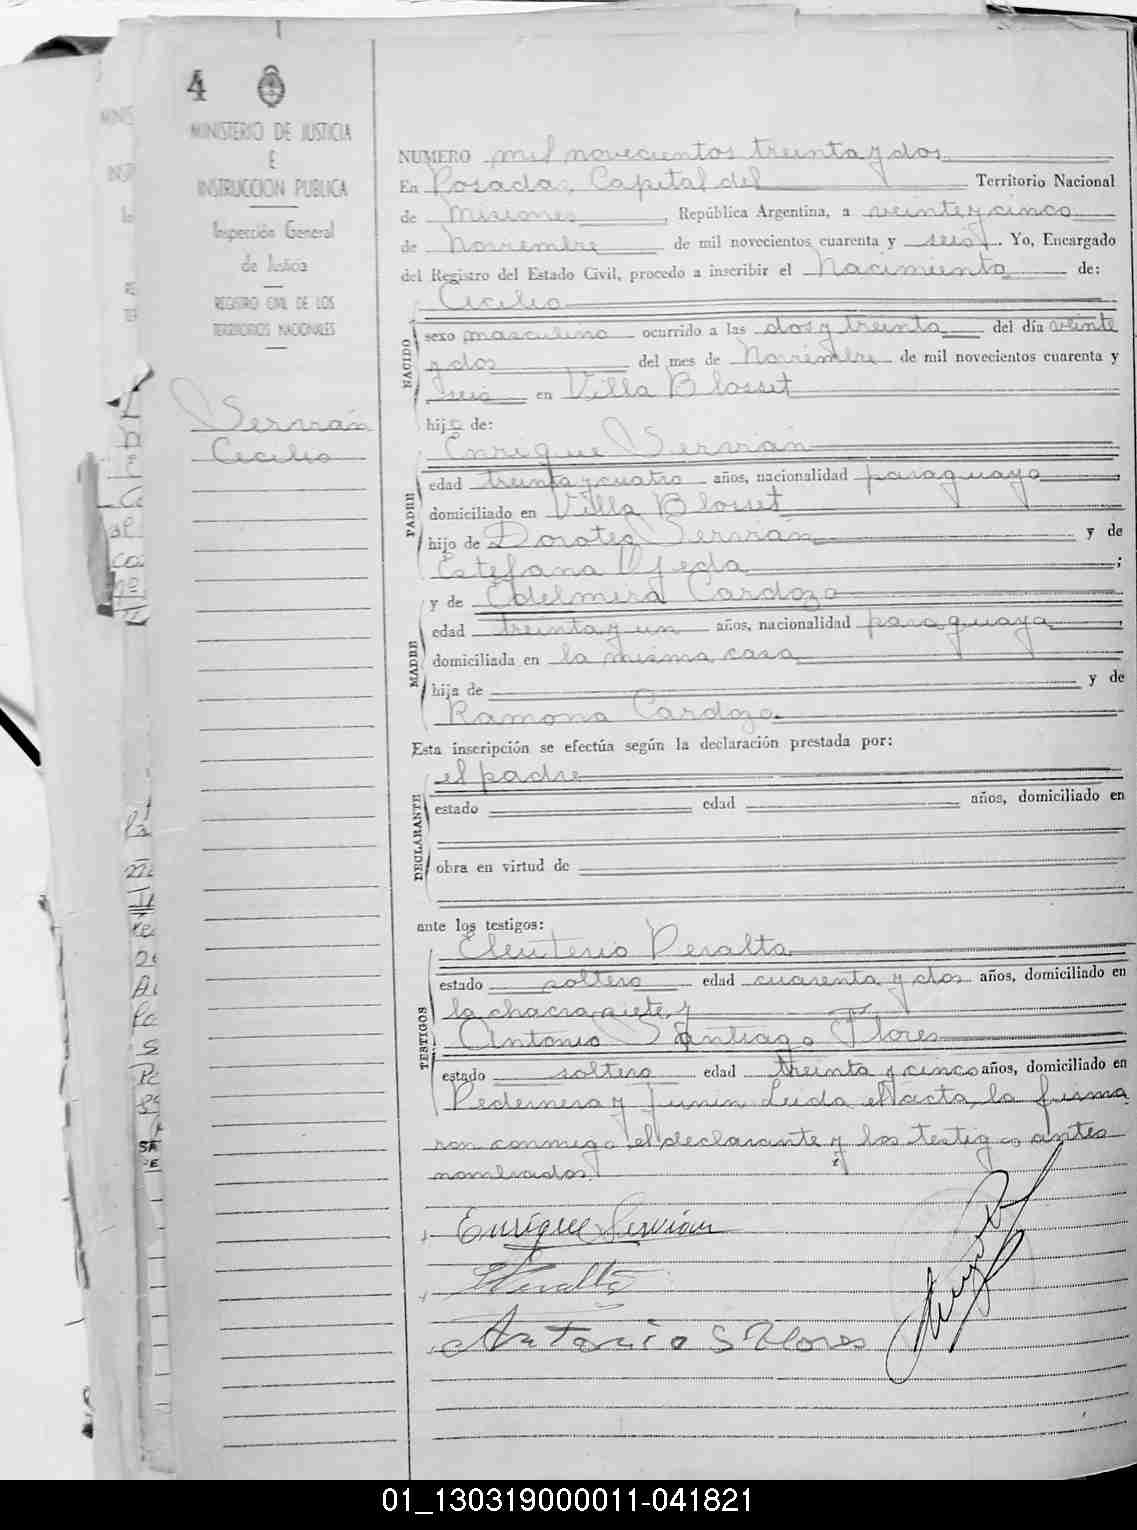 4
MINISTERIO DE JUSTICIA
E
INSTRUCCION PUBLICA
Inspección General
de Justicia
REGISTRO CIVIL DE LOS
TERRITORIOS NACIONALES
Servián
Cecilio
NUMERO mil novecientos treinta y dos
En Posadas, Capital del Territorio Nacional
de Misiones, República Argentina, a veinte y cinco
de Noviembre de mil novecientos cuarenta y seis. Yo, Encargado
del Registro del Estado Civil, procedo a inscribir el Nacimiento de:
Cecilio
NACIDO
sexo masculino ocurrido a las dos y treinta del día veinte
y dos del mes de Noviembre de mil novecientos cuarenta y
seis en Villa Blosset
hijo de:
Enrique Servián
PADRE
edad treinta y cuatro años, nacionalidad paraguaya
domiciliado en Villa Blosset
hijo de Doroteo Servián y de
Estefana Ojeda;
y de Edelmira Cardozo
MADRE
edad treinta y un años, nacionalidad paraguaya
domiciliada en la misma casa
hija de y de
Ramona Cardozo
Esta inscripción se efectúa según la declaración prestada por:
el padre
DECLARANTE
estado edad años, domiciliado en
obra en virtud de
ante los testigos:
Eleuterio Peralta
TESTIGOS
estado soltero edad cuarenta y dos años, domiciliado en
la chacra siete, y
Antonio Santiago Flores
estado soltero edad treinta y cinco años, domiciliado en
Pedernera y Junin. Leida el acta, la firma
ron conmigo el declarante y los testigos antes
nombrados.
Enrique Servián
E Peralta
Antonio S Flores
01_130319000011-041821